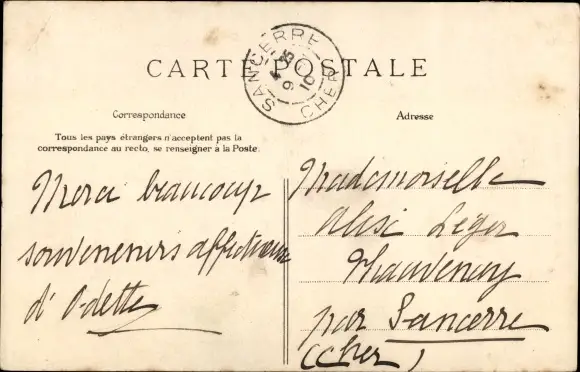 CARTE POSTALE
SANCERRE
CHER
Correspondance
Adresse
Tous les pays étrangers n'acceptent pas la
correspondance au recto, se renseigner à la Poste.
Merci beaucoup
souvenenirs affectueux
d' Odette
Mademoiselle
Alise Léger
Thauvenay
par Sancerre
(Cher)